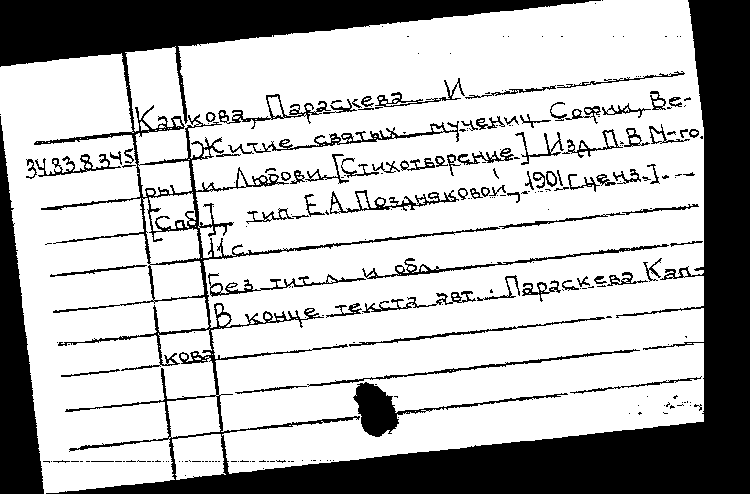 Капкова, Параскева И
34.83.8.345 Житие святых мучениц Софии, Ве-
ры и Любови. [Стихотворение]. Изд. П.В.М-го.
[Спб.], тип. Е.А. Поздняковой, 1901 [ценз.]. -
11 с.
Без тит. л. и обл.
В конце текста авт.: Параскева Кап-
кова.